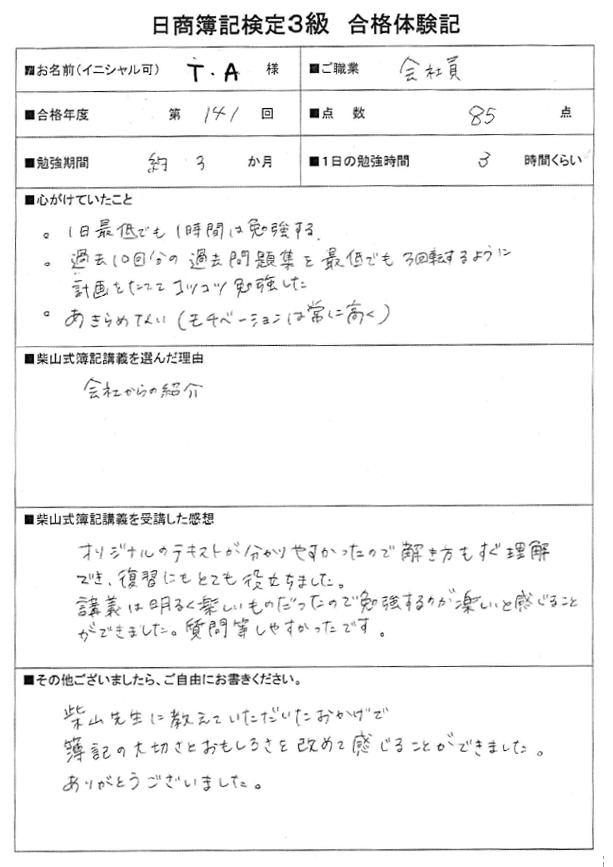 日商簿記検定3級 合格体験記
■お名前(イニシャル可) T.A 様 ■ご職業 会社員
■合格年度 第 141 回 ■点 数 85 点
■勉強期間 約 3 か月 ■1日の勉強時間 3 時間くらい
■心がけていたこと
。1日最低でも1時間は勉強する.
。過去10回分の過去問題集を最低でも3回転するように
計画をたててコツコツ勉強した
。あきらめない(モチベーションは常に高く)
■柴山式簿記講義を選んだ理由
会社からの紹介
■柴山式簿記講義を受講した感想
オリジナルのテキストが分かりやすかったので解き方もすぐ理解
でき、復習にもとても役立ちました。
講義は明るく楽しいものだったので勉強するのが楽しいと感じること
ができました。質問等しやすかったです。
■その他ございましたら、ご自由にお書きください。
柴山先生に教えていただいたおかげで
簿記の大切さとおもしろさを改めて感じることができました。
ありがとうございました。